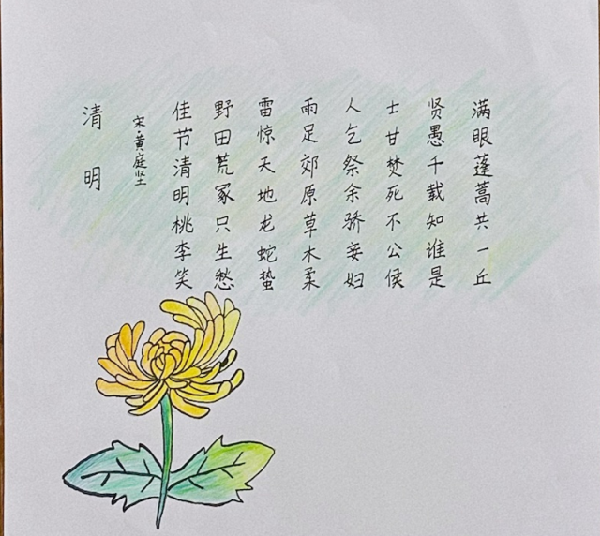 清明
宋·黄庭坚
佳节清明桃李笑
野田荒冢只生愁
雷惊天地龙蛇蛰
雨足郊原草木柔
人乞祭余骄妾妇
士甘焚死不公侯
贤愚千载知谁是
满眼蓬蒿共一丘